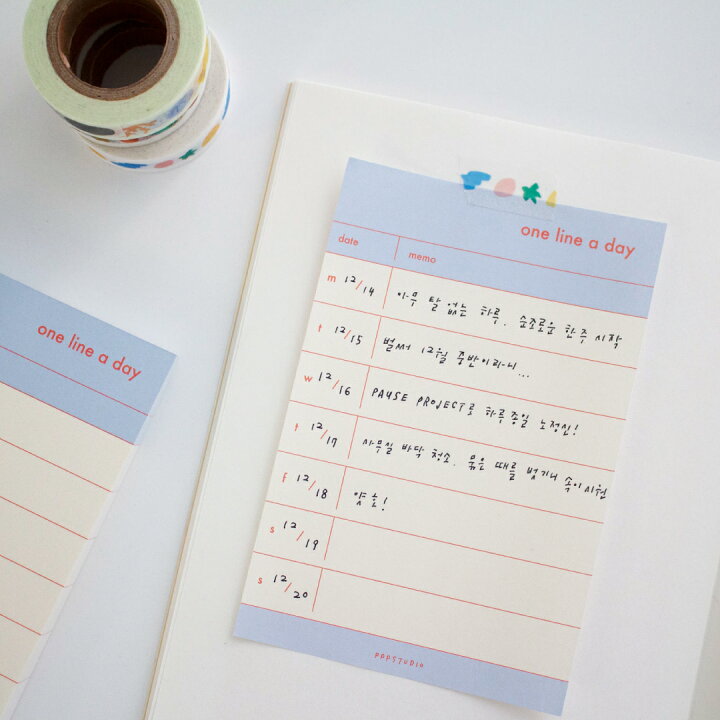 one line a day
date memo
m 12/14 아무 탈 없는 하루. 순조로운 한 주 시작
t 12/15 벌써 12월 중반이라니...
w 12/16 PAUSE PROJECT로 하루종일 노정신!
t 12/17 사무실 바닥 청소. 묵은 때를 벗기니 속이 시원
f 12/18 얏호!
s 12/19
s 12/20
PPPSTUDIO
one line a day